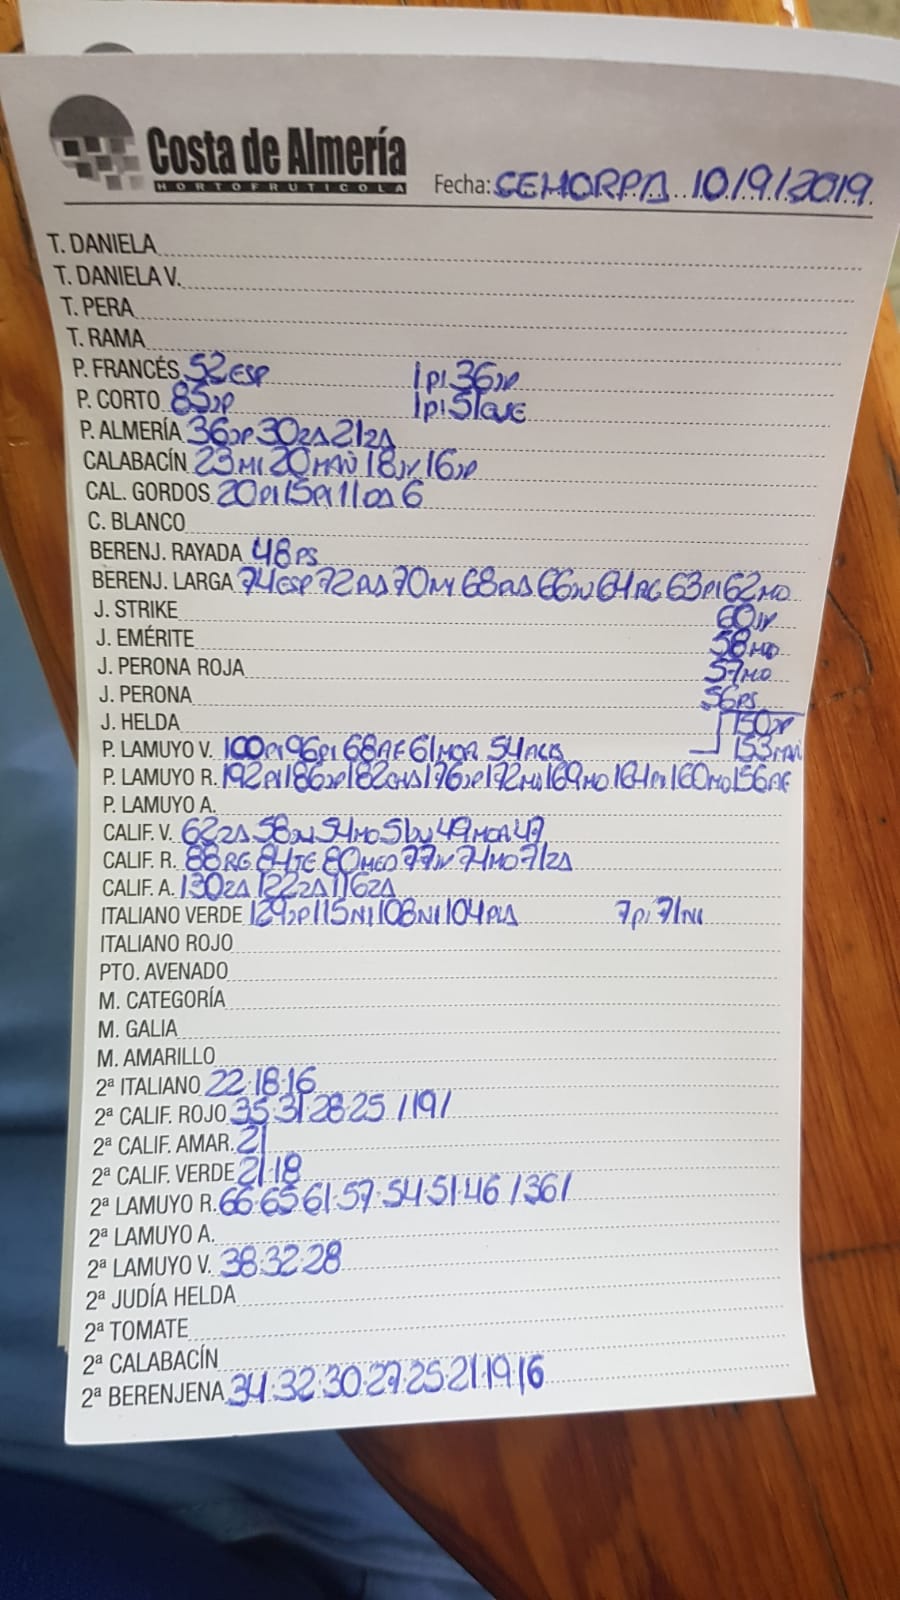 Costa de Almería
HORTOFRUTICOLA
Fecha: CEHORPA 10/9/2019
T. DANIELA
T. DANIELA V.
T. PERA
T. RAMA
P. FRANCÉS 52ESP 1PI 36JP
P. CORTO 85JP 1PI 51QUE
P. ALMERÍA 36JP 30ZA 21ZA
CALABACÍN 23MI 20MAN 18JV 16JP
CAL. GORDOS 20PI 15PI 11OA 6
C. BLANCO
BERENJ. RAYADA 48PS
BERENJ. LARGA 74ESP 72 70 68 66 64RG 63PI 62MO
J. STRIKE 60JV
J. EMÉRITE 58MO
J. PERONA ROJA 57MO
J. PERONA 56PS
J. HELDA 150JP
P. LAMUYO V. 100PI 96PI 68AF 61MOR 54 153MAN
P. LAMUYO R. 192PI 186JP 182 176JP 172MO 169MO 164PI 160MO 156AF
P. LAMUYO A.
CALIF. V. 62ZA 58 54MO 51 49MOR 47
CALIF. R. 88RG 84TE 80MED 77JV 74MO 71ZA
CALIF. A. 130ZA 122ZA 116ZA
ITALIANO VERDE 129JP 115NI 108NI 104PLA 7PI 71NI
ITALIANO ROJO
PTO. AVENADO
M. CATEGORÍA
M. GALIA
M. AMARILLO
2ª ITALIANO 22·18·16
2ª CALIF. ROJO 35·31·28·25 /19/
2ª CALIF. AMAR. 21
2ª CALIF. VERDE 21·18
2ª LAMUYO R. 66·65·61·57·54·51·46 /36/
2ª LAMUYO A.
2ª LAMUYO V. 38·32·28
2ª JUDÍA HELDA
2ª TOMATE
2ª CALABACÍN
2ª BERENJENA 34·32·30·27·25·21·19·16